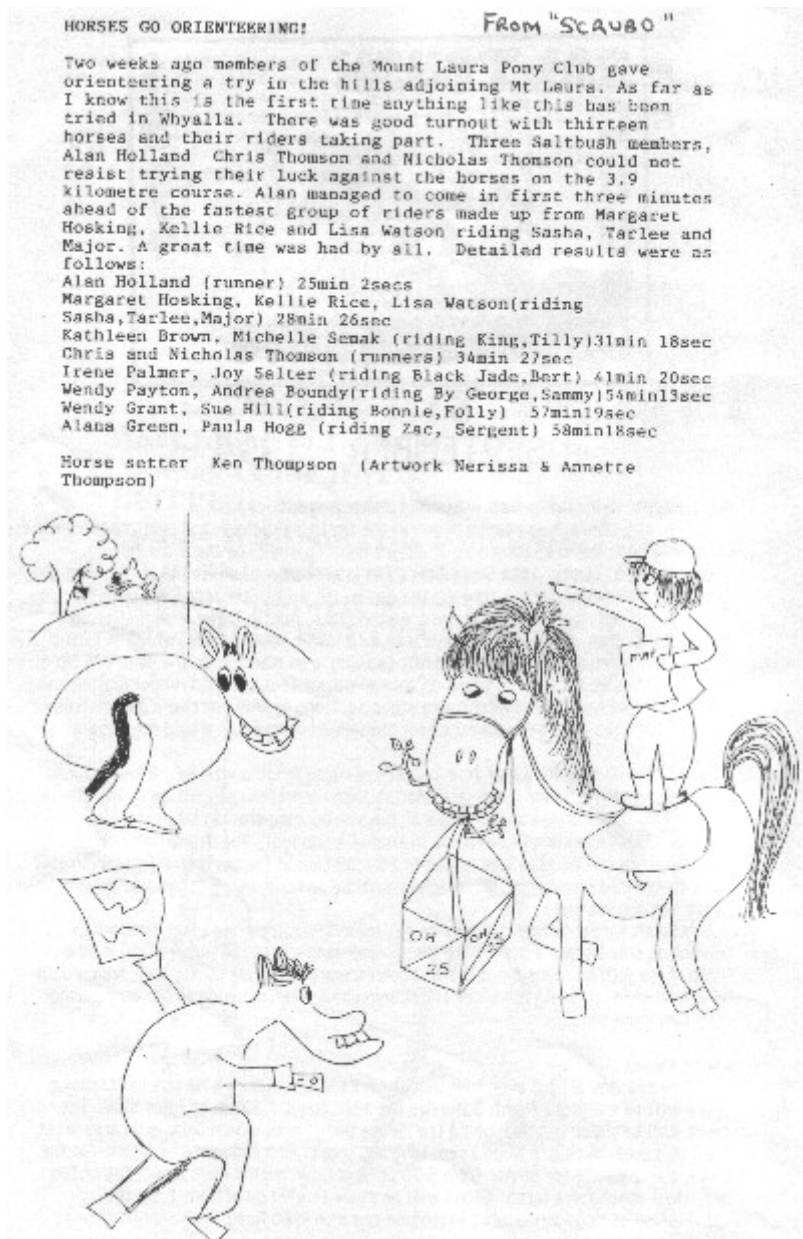 HORSES GO ORIENTEERING!
FROM "SCRUBO"
Two weeks ago members of the Mount Laura Pony Club gave
orienteering a try in the hills adjoining Mt Laura. As far as
I know this is the first time anything like this has been
tried in Whyalla. There was good turnout with thirteen
horses and their riders taking part. Three Saltbush members,
Alan Holland Chris Thomson and Nicholas Thomson could not
resist trying their luck against the horses on the 3.9
kilometre course. Alan managed to come in first three minutes
ahead of the fastest group of riders made up from Margaret
Hosking, Kellie Rice and Lisa Watson riding Sasha, Tarlee and
Major. A great time was had by all. Detailed results were as
follows:
Alan Holland (runner) 25min 2secs
Margaret Hosking, Kellie Rice, Lisa Watson(riding
Sasha,Tarlee,Major) 28min 26sec
Kathleen Brown, Michelle Semak (riding King,Tilly)31min 18sec
Chris and Nicholas Thomson (runners) 34min 27sec
Irene Palmer, Joy Salter (riding Black Jade,Bert) 41min 20sec
Wendy Payton, Andrea Boundy(riding By George,Sammy)54min13sec
Wendy Grant, Sue Hill(riding Bonnie,Folly) 57min19sec
Alana Green, Paula Hogg (riding Zac, Sergent) 58min18sec
Horse setter Ken Thompson (Artwork Nerissa & Annette
Thompson)
MAP
OH
25